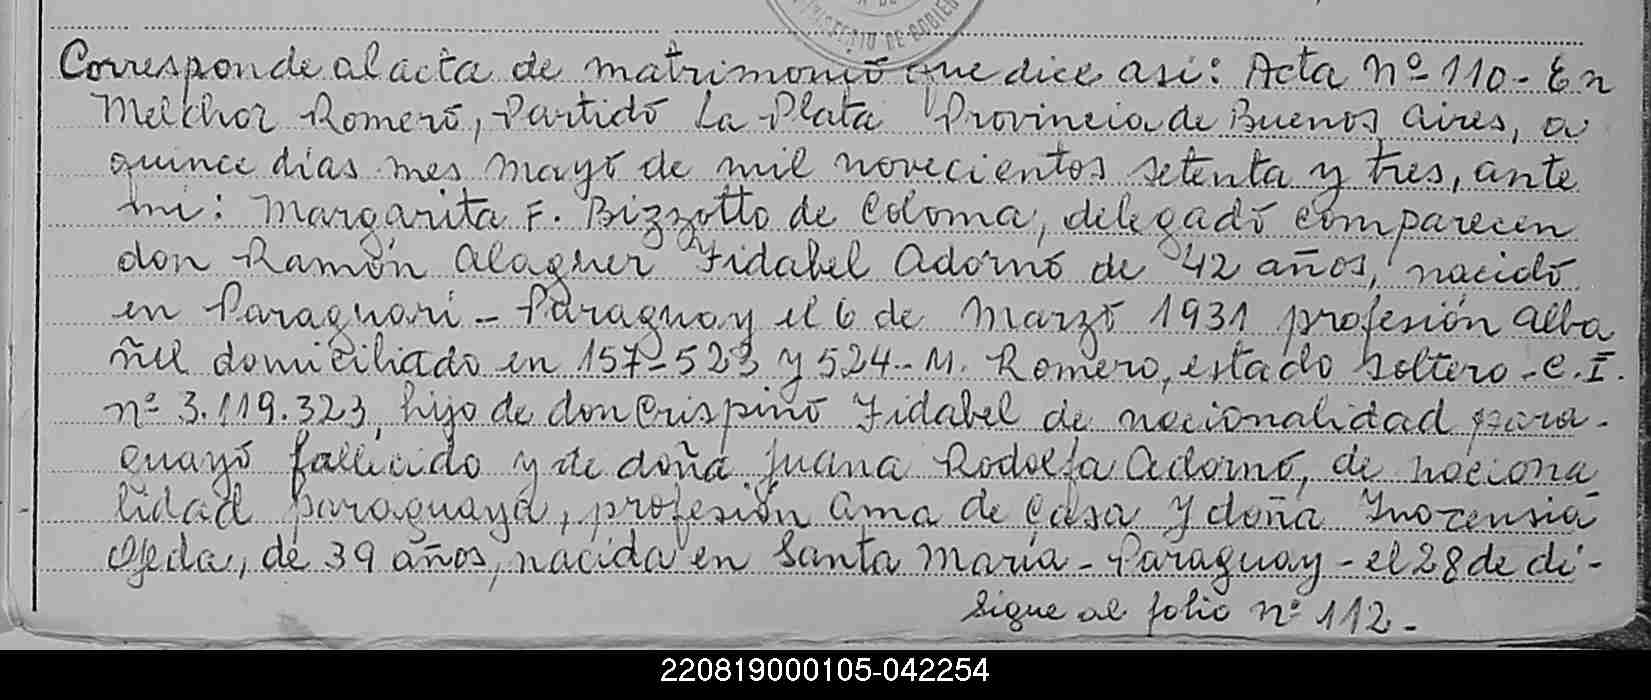 MINISTERIO DE GOBIE
Corresponde al acta de matrimonio que dice asi: Acta Nº 110 - En
Melchor Romero, Partido La Plata Provincia de Buenos Aires, a
quince dias mes Mayo de mil novecientos setenta y tres, ante
mi: Margarita F. Bizzotto de Coloma, delegado comparecen
don Ramón Alaguer Fidabel Adorno de 42 años, nacido
en Paraguari - Paraguay el 6 de Marzo 1931 profesión alba
ñil domiciliado en 157-523 y 524-M. Romero, estado soltero - C.I.
nº 3.119.323, hijo de don Crispino Fidabel de nacionalidad para-
guayo fallecido y de doña Juana Rodolfa Adorno, de naciona
lidad paraguaya, profesión ama de casa y doña Inozensia
Ojeda, de 39 años, nacida en Santa María - Paraguay - el 28 de di-
Sigue al folio nº 112 -
220819000105-042254